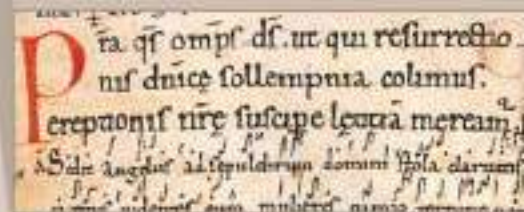 Pr̄a qs̄ omp̄s ds̄. ut qui resurrectio
nis dn̄icę sollempnia colimus.
ereptionis nr̄ę suscipe lętitiā meream
Sedit angelus ad sepulchrum domini stola
eum mulieres nimio